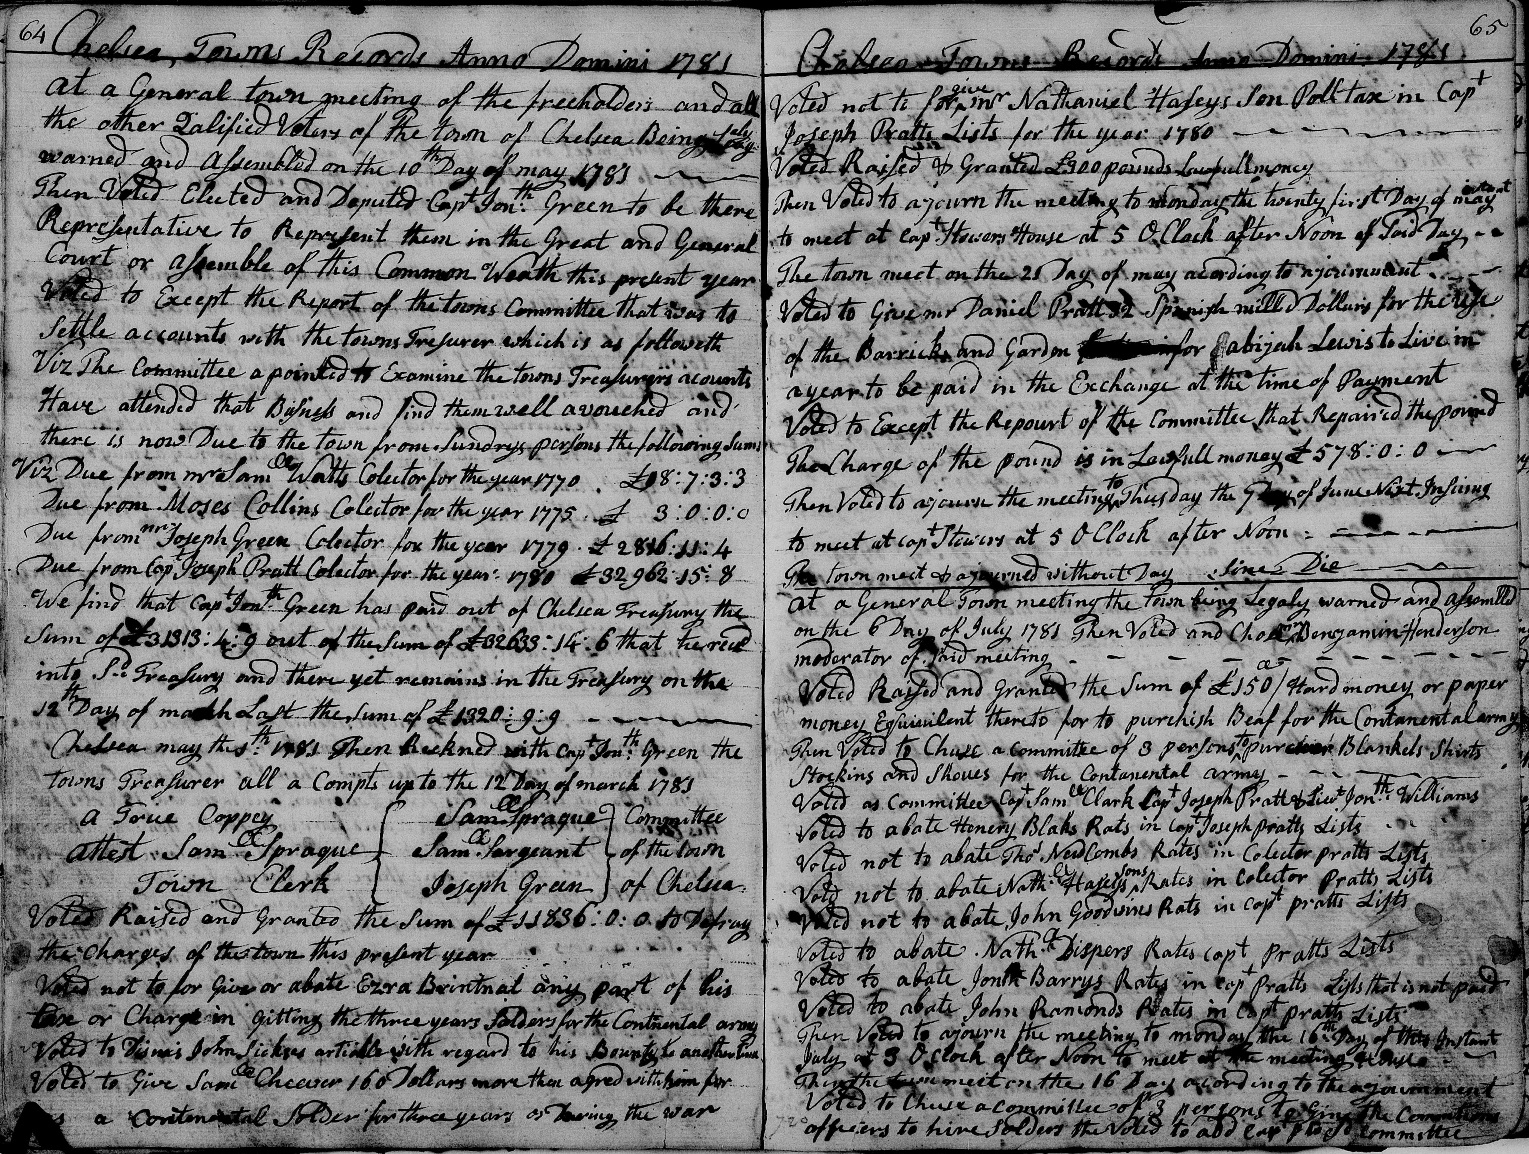 64
Chelsea, Towns Records Anno Domini 1781
at a General town meeting of the freeholders and all
the other Qalified Voters of the town of Chelsea Being Legaly
warned and assembled on the 10th Day of may 1781
Then Voted Elected and Deputed Capt Jonth Green to be there
Representative to Represent them in the Great and General
Court or assemble of this Common Wealth this present year
Voted to Except the Report of the towns Committee that was to
Settle accounts with the towns Tresurer which is as followeth
Viz The Committee apointed to Examine the towns Treasurers acounts
Have attended that Busness and find them well avouched and
there is now Due to the town from Sundrys persons the following Sums
Viz Due from mr Samll Watts Colector for the year 1770 £98:7:3:3
Due from Moses Collins Colector for the year 1775 £ 3:0:0:0
Due from mr Joseph Green Colector for the year 1779 £2816:11:4
Due from Capt Joseph Pratt Colector for the year 1780 £32962:15:8
We find that Capt Jonth Green has paid out of Chelsea Treasury the
Sum of £31313:4:9 out of the Sum of £32633:14:6 that he recd
into Sd Treasury and there yet remains in the Treasury on the
12th Day of march Last the Sum of £1320:9:9
Chelsea may the 1781 Then Reckned with Capt Jonth Green the
towns Treasurer all a Compts up to the 12 Day of march 1781
a True Coppey Samll Sprague Committee
attest Samll Sprague Samll Sargeant of the town
Town Clerk Joseph Green of Chelsea
Voted Raised and Granted the Sum of £11836:0:0 to Defray
the Charges of the town this present year
Voted not to for Give or abate Ezra Brintnal any part of his
tax or Charge in gitting the three years Solders for the Continental army
Voted to Dismis John Sickes article with regard to his Bounty to another time
Voted to Give Samll Cheever 160 Dollars more then agred with him for
a Contenental Solder for three years or During the war
65
Chelsea Towns Records Anno Domini 1781
Voted not to for give mr Nathaniel Haseys Son Poll tax in Capt
Joseph Pratts Lists for the year 1780
Voted Raised & Granted £900 pounds Lawfull money
Then Voted to ajourn the meeting to monday the twenty first Day of may instant
to meet at Capt Stowers House at 5 O Clock after Noon of Said Day
The town meet on the 21 Day of may acording to ajournment
Voted to Give mr Daniel Pratt 32 Spanish milld Dollars for the Use
of the Barrick and Gardon for abijah Lewis to Live in
a year to be paid in the Exchange at the time of Payment
Voted to Except the Repourt of the Committee that Repaired the pound
The Charge of the pound is in Lawfull money £578:0:0
Then Voted to ajourn the meeting to Thusday the 7 Day of June Next Insuing
to meet at capt Stowers at 5 O Clock after Noon
The town meet & ajourned without Day Sine Die
at a General Town meeting the Town being Legaly warned and assembled
on the 6 Day of July 1781 Then Voted and Chose mr Benjamin Henderson
moderator of Said meeting
Voted Raised and Granted the Sum of £150/ Hard money or paper
money Equivilent thereto for to purchish Beaf for the Contanental army
Then Voted to Chuse a Committee of 3 persons to purchish Blankets Shirts
Stockins and Shoues for the Contanental army
Voted as Committee Capt Samll Clark Capt Joseph Pratt & Liewt Jonth Williams
Voted to abate Henery Blaks Rats in Capt Joseph Pratts Lists
Voted not to abate Thos NewCombs Rates in Colector Pratts Lists
Voted not to abate Nathll Haseys Sons Rates in Colector Pratts Lists
Voted not to abate John Goodwins Rats in Capt pratts Lists
Voted to abate Nathll Dispers Rates Capt Pratts Lists
Voted to abate Jonth Barrys Rates in Capt Pratts Lists that is not paid
Voted to abate John Ramonds Rates in Capt pratts Lists
Then Voted to ajourn the meeting to monday the 16th Day of this Instant
July at 3 O Clock after Noon to meet at the meeting House
Then the town meet on the 16 Day acording to the ajournment
Voted to Chuse a Committee of 3 persons to the
officers to hire Solders the Voted to add Capt to Sd Committee